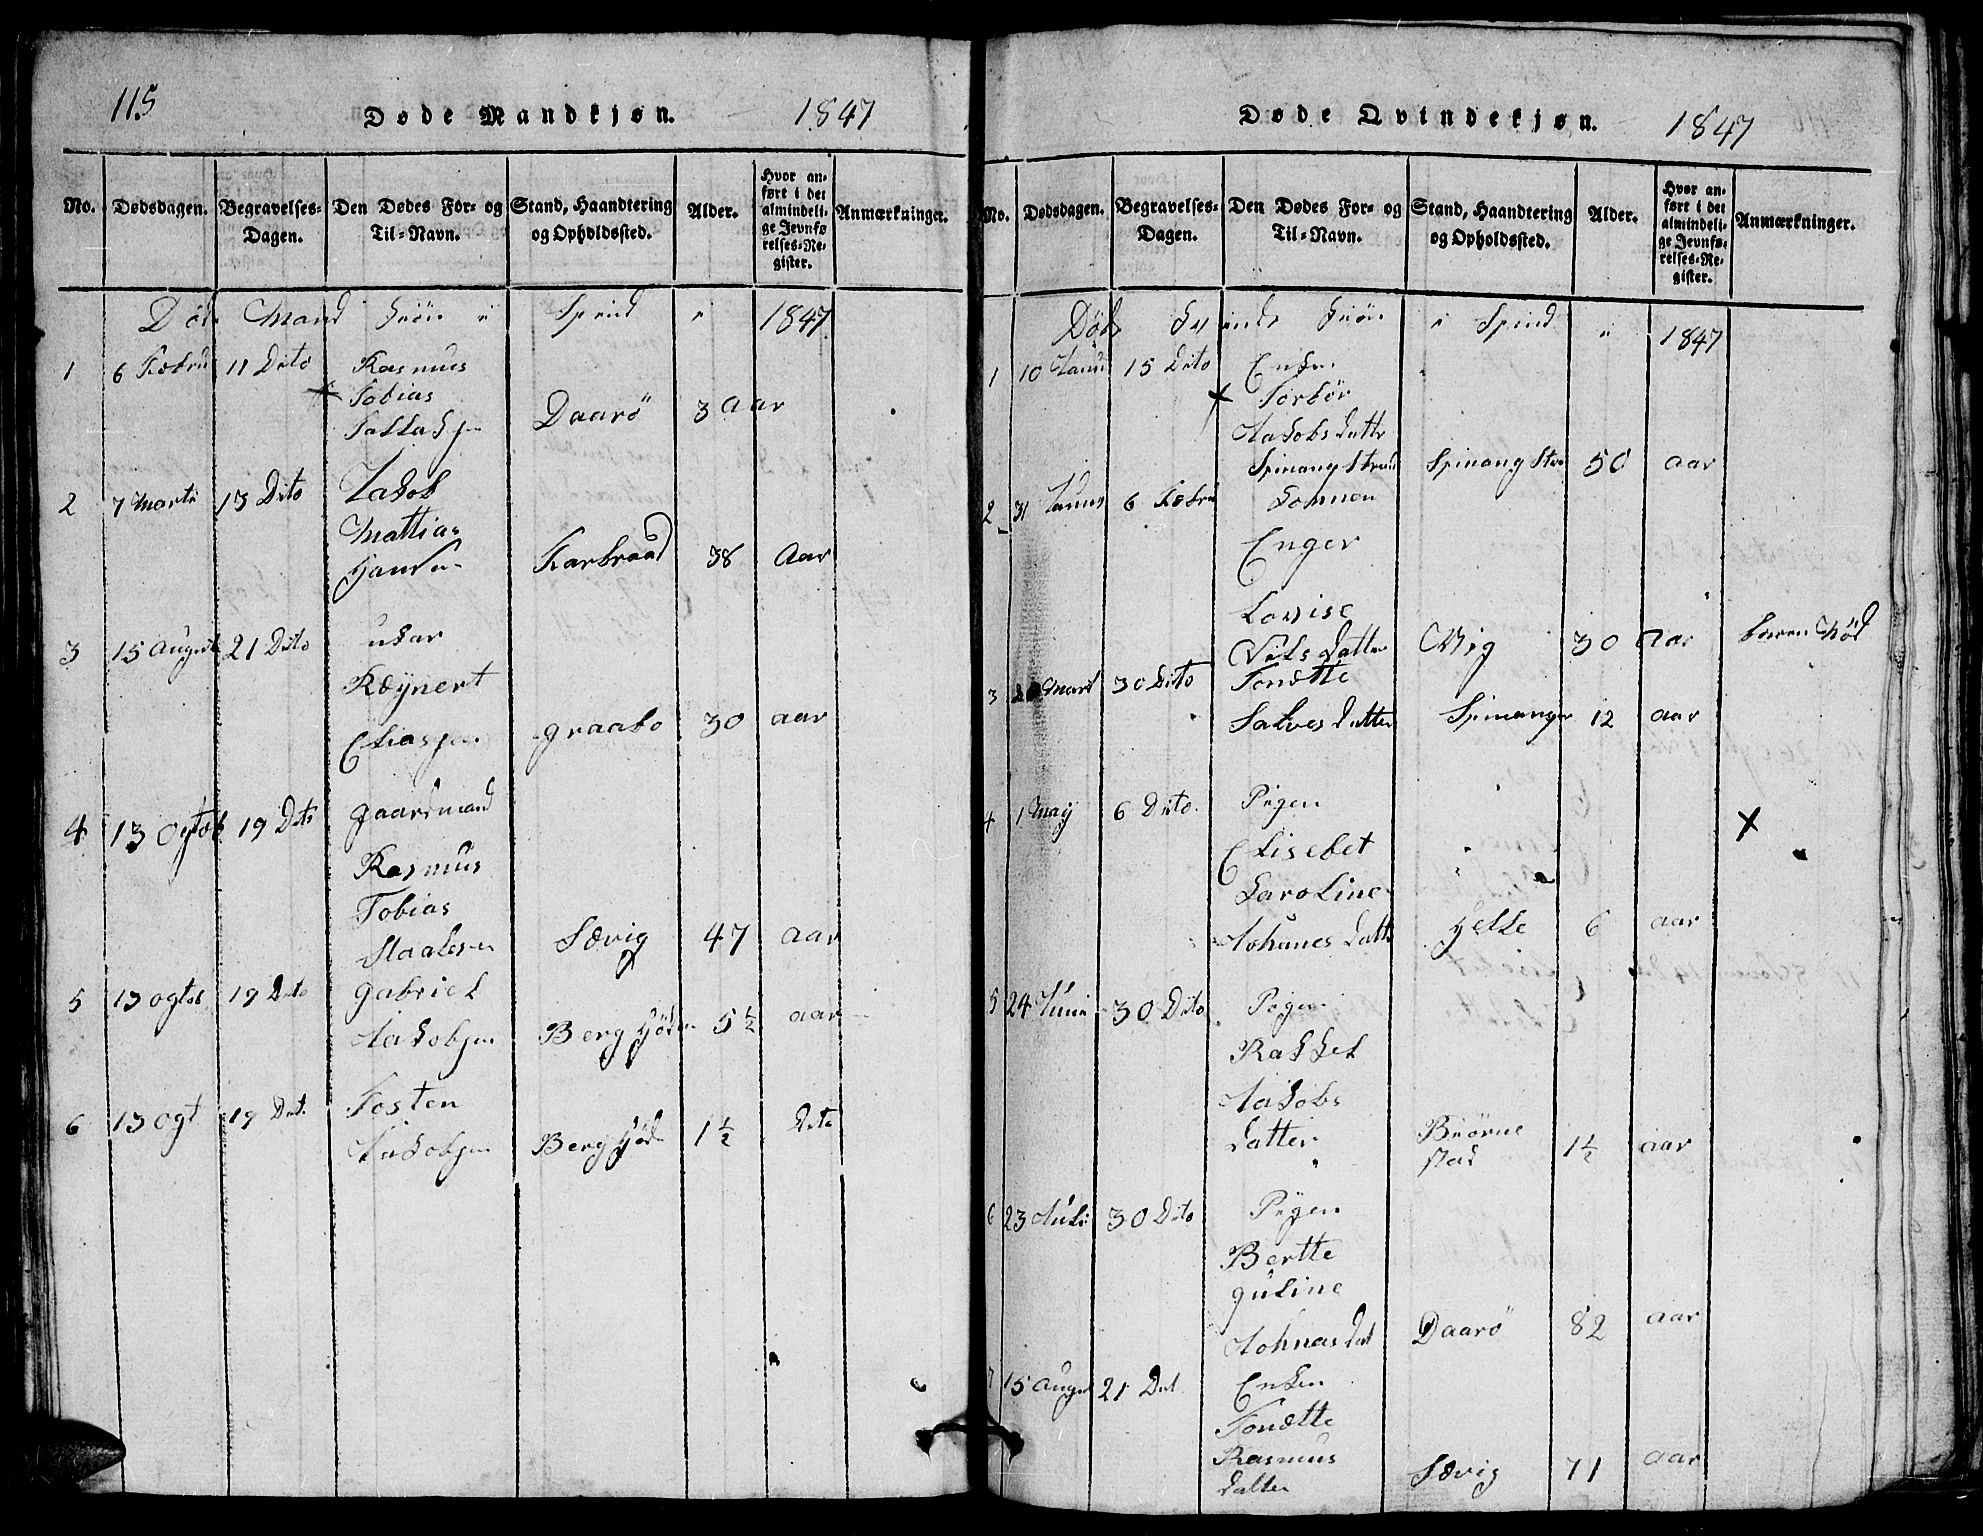 115
Døde Mandkjøn.
1847
No.
Dødsdagen.
Begravelses-
Dagen.
Den Dødes For- og
Til-Navn.
Stand, Haandtering
og Opholdssted.
Alder.
Hvor an-
ført i det
almindeli-
ge Jevnfø-
relses-Re-
gister.
Anmærkninger.
Mand Spind 1847
1 6 Febru 11 Dito Rasmus
Tobias
Daarö 3 Aar
2 7 Marti 13 Dito Jakob
Mattias
Karbraad 38 Aar
3 15 August 21 Dito
Ræynert
Eliassen graabo 30 aar
4 13 Ogtob 19 Dito gaardmand
Rasmus
Tobias
Staalesen Sævig 47 aar
5 13 ogtob 19 Dito gabriel
Jakobsen Berg 5 1/2 aar
6 13 Ogt 19 Dit. Tosten
Jakobsen Berg 1 1/2 Dito
Døde Qvindekjøn.
1847
No.
Dødsdagen.
Begravelses-
Dagen.
Den Dødes For- og
Til-Navn.
Stand, Haandtering
og Opholdssted.
Alder.
Hvor an-
ført i det
almindeli-
ge Jevnfø-
relses-Re-
gister.
Anmærkninger.
Spind 1847
1 10 Janu 15 Dito Enken
Torbör
Jakobs datte
50 aar
2 31 Janu 6 Febru konnen
Enger
Lovise
Nils datter Vig 30 Aar
3 Mart 30 Dito Tonette
Salves datter Spinanger 12 aar
4 1 May 6 Dito. Pigen
Elisebet
Karoline
Johanes datte Helle 6 aar
5 24 Juni 30 Dito Pigen
Rakkel
Jakobs
datter Biörne
stad 1 1/2 aar
6 23 Juli 30 Dito Pigen
Bertte
guline
Johnas dat Daarö 82 aar
7 15 August 21 Dit Enken
Tonette
Rasmus
datter Sævig 71 aar